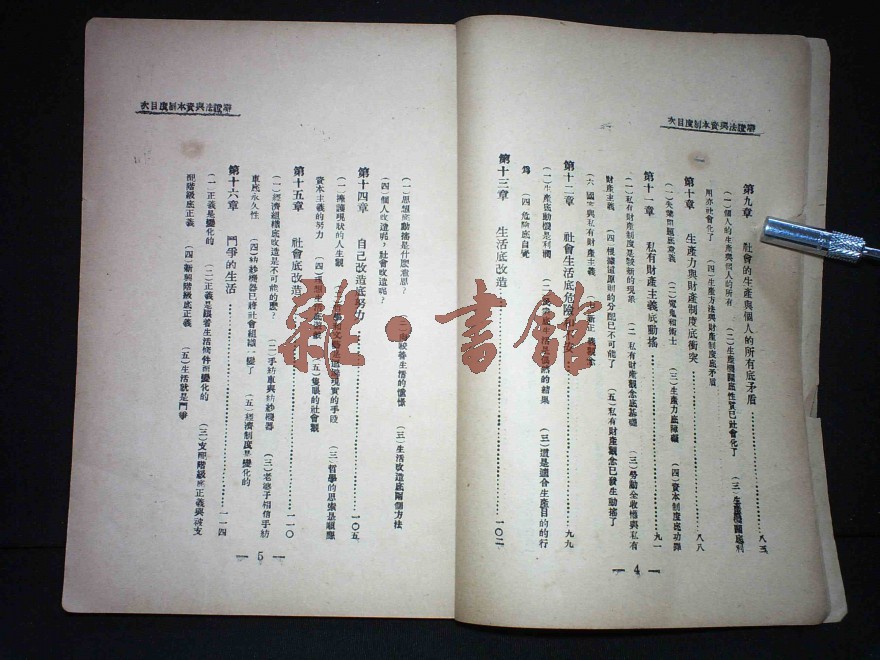 辯證法與資本制度目次
第九章　社會的生產與個人的所有底矛盾………八三
(一)個人的生產與個人的所有　(二)生產機關底性質已社會化了　(三)生產機關底利
用亦社會化了　(四)生產方法與財產制度底矛盾
第十章　生產力與財產制度底衝突………八八
(一)失業問題底意義　(二)電鬼和術士　(三)生產力底障礙　(四)資本制度底功罪
第十一章　私有財產主義底動搖………九一
(一)私有財產制度是最新的現象　(二)私有財產觀念底基礎　(三)勞動全收權與私有
財產主義　(四)根據這原則的分配已不可能了　(五)私有財產觀念已發生動搖了
(六)國家與私有財產主義　(七)新正義
第十二章　社會生活底危險　………九九
(一)生產底動機是利潤　(二)　生活是　的結果　(三)這是適合生產目的的行
為　(四)危險底自覺
第十三章　生活底改造………一〇二
— 4 —
辯證法與資本制度目次
(一)思想底動搖是什麼意思？　(二)改善生活的憧憬　(三)生活改造底兩個方法
(四)個人改造呢，社會改造呢？
第十四章　自己改造底努力………一〇五
(一)擁護現狀的人生觀　(二)　現實的手段　(三)哲學的思索是順應
資本主義的努力　(四)　(五)隻眼的社會觀
第十五章　社會底改造………一一〇
(一)經濟組織底改造是不可能的麼？　(二)手紡車與紡紗機器　(三)老婆子相信手紡
車底永久性　(四)紡紗機器已將社會組織一變了　(五)經濟制度是變化的
第十六章　鬥爭的生活………一一四
(一)正義是變化的　(二)正義是跟着生活條件而變化的　(三)支配階級底正義與被支
配階級底正義　(四)新興階級底正義　(五)生活就是鬥爭
— 5 —
雜·書館